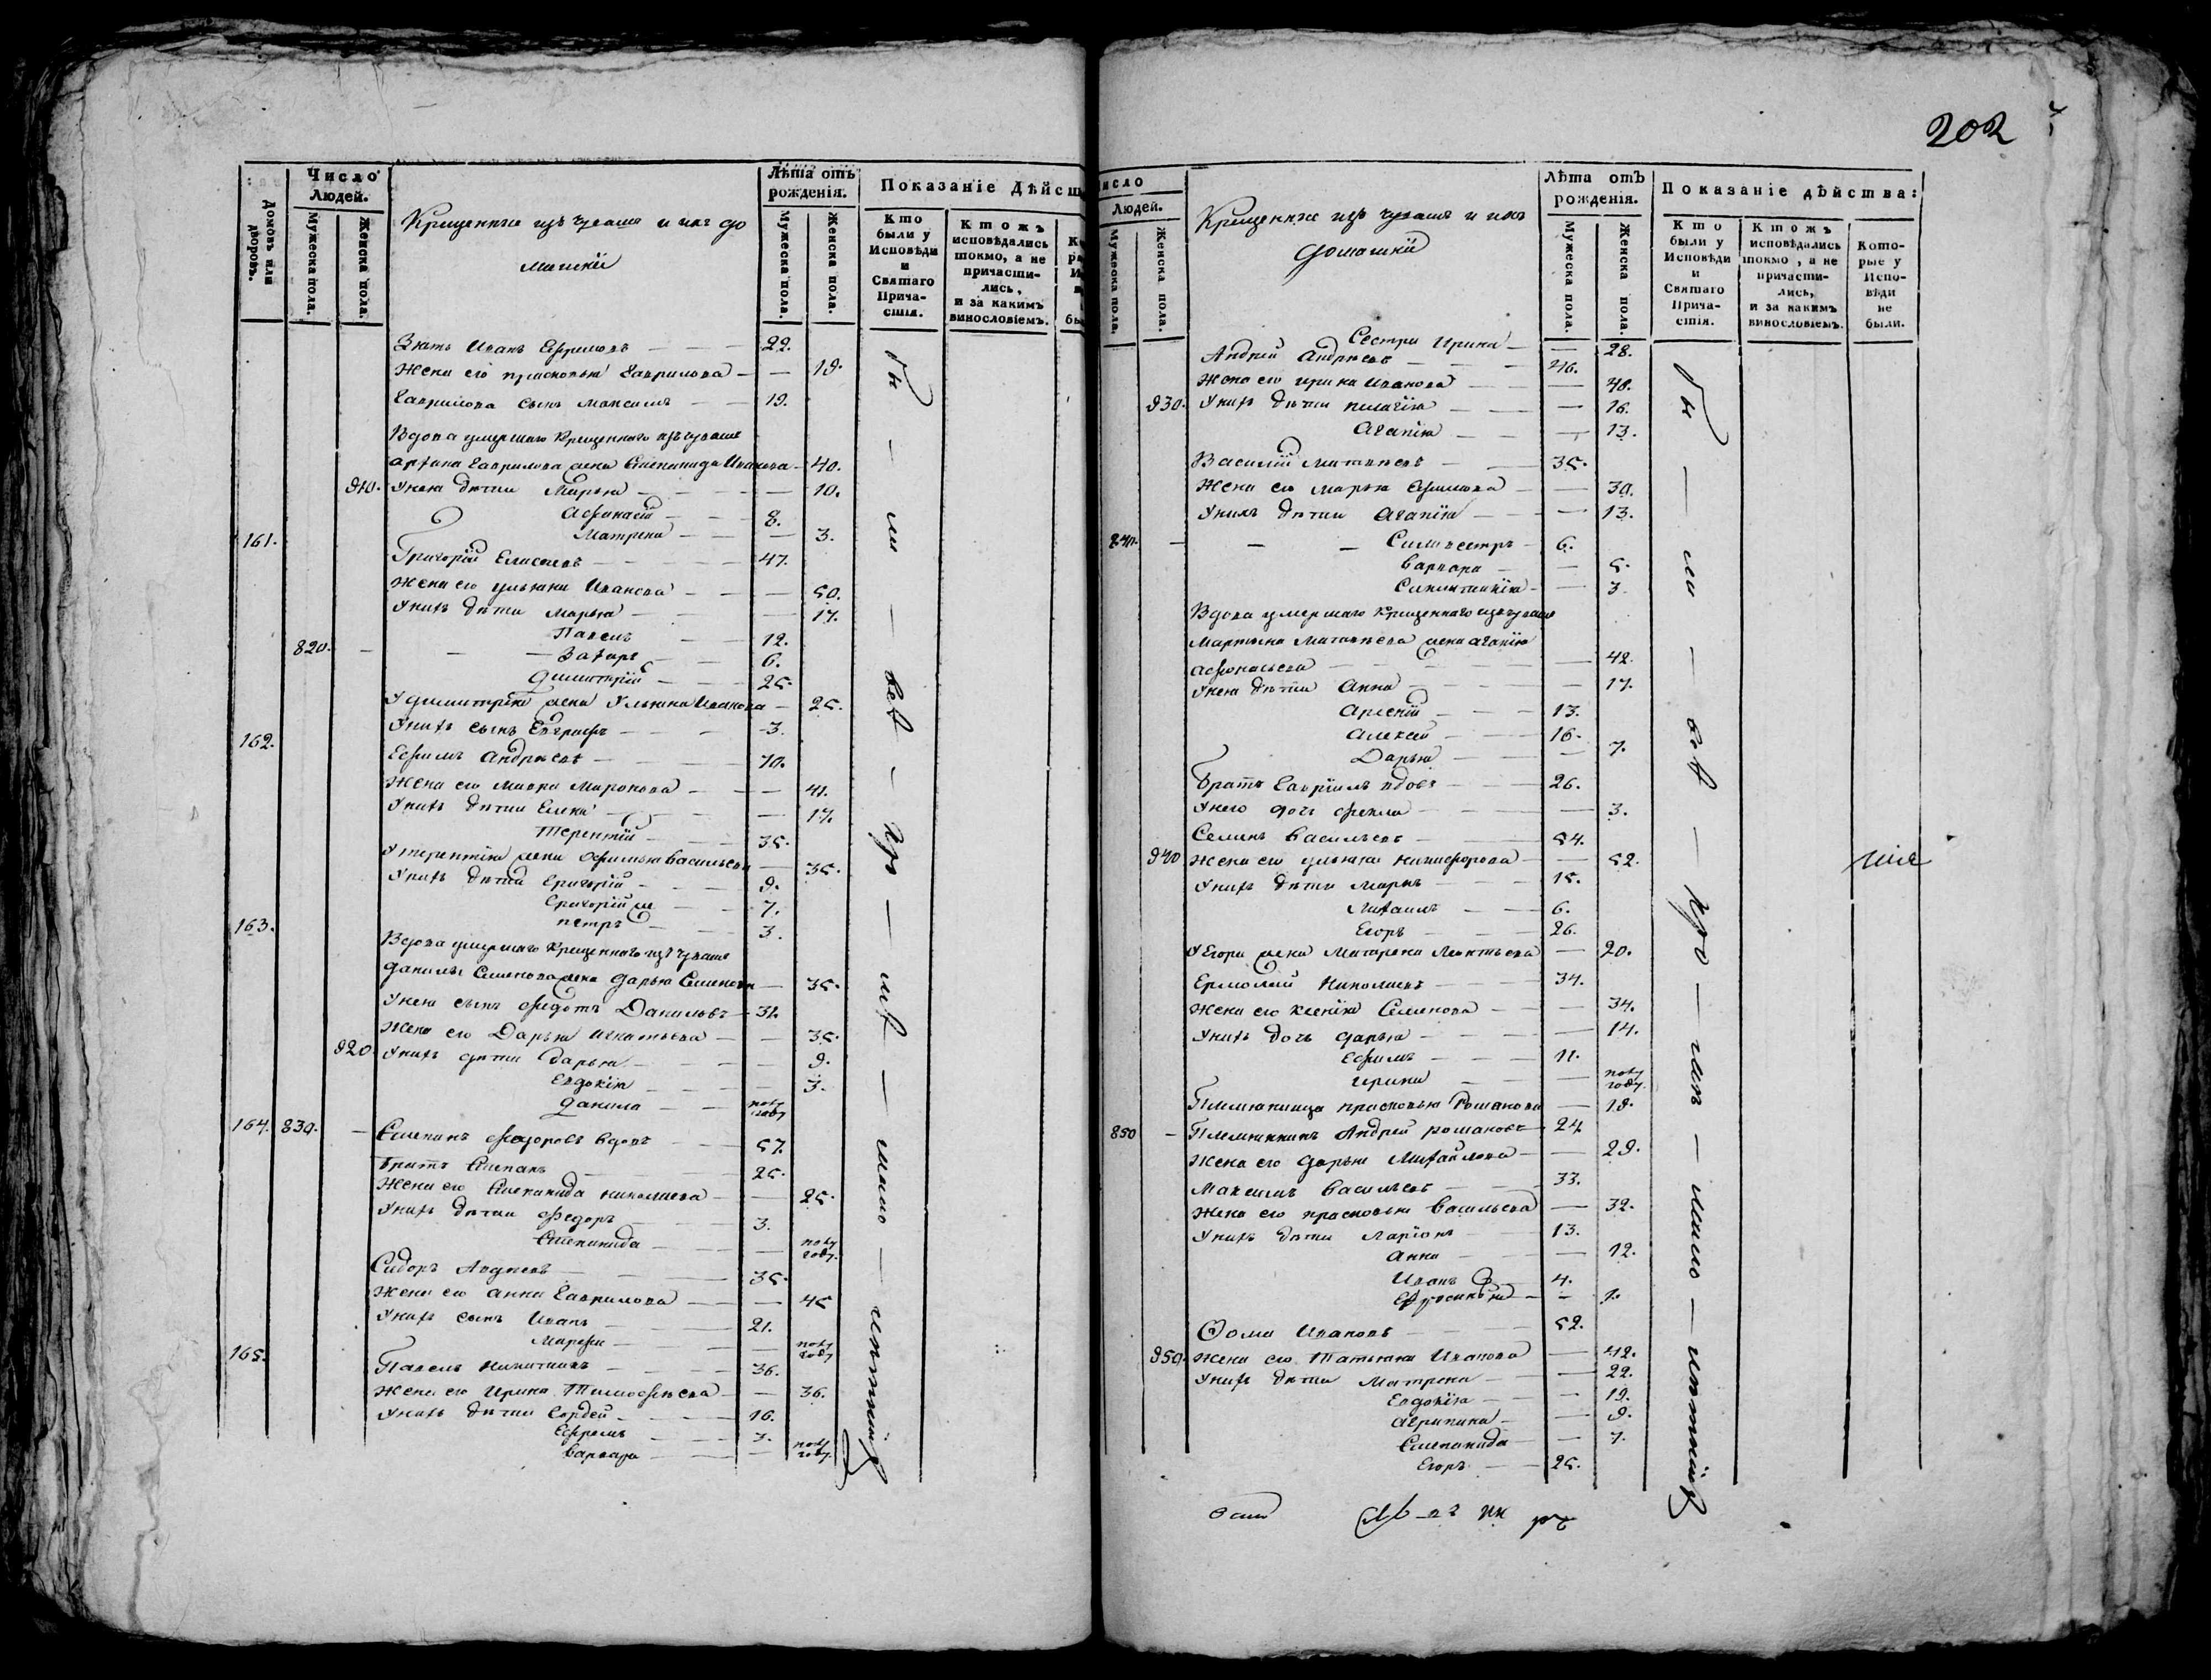 Число
Людей.
Домовъ или дворовъ.
Мужеска пола.
Женска пола.
Крещенные изъ чувашъ и ихъ до
машнїи
Лѣта отъ
рожденія.
Мужеска пола.
Женска пола.
Показаніе Дѣйст
Кто
были у
Исповѣди
и
Святаго
Прича-
стія.
Ктожъ
исповѣдались
токмо, а не
причасти-
лись,
и за какимъ
винословіемъ.
Зять Иванъ Ефимовъ 22.
Жена его прасковья Гаврилова 19.
Гаврилова сынъ Максимъ 19.
Вдова умершаго Крещеннаго изъ чувашъ
Гаврилова жена Степанида Иванова 40.
910. У нея дѣти Марья 10.
Афанасій 8.
Матрена 3.
161. Григорій Елисеевъ 47.
Жена его ульяна Иванова 50.
У нихъ дѣти Марья 17.
Павелъ 12.
820. Захаръ 6.
Димитрій 25.
У димитрія жена Ульяна Иванова 25.
У нихъ сынъ Евграфъ 3.
162. Ефимъ Андреевъ 70.
Жена его Мавра Миронова 41.
У нихъ дѣти Елена 17.
Терентій 35.
У терентія жена Афимья Васильева 35.
У нихъ дѣти Григорій 9.
Григорій м 7.
петръ 3.
163. Вдова умершаго Крещеннаго изъ чувашъ
Данилы Семенова жена Дарья Семенова 35.
У нея сынъ Федотъ Даниловъ 31.
Жена его Дарья Игнатьева 35.
920. У нихъ дѣти Дарья 9.
Евдокія 3.
Данила полу году
164. 830. Степанъ Федоровъ вдовъ 57.
Братъ Степанъ 25.
Жена его Степанида Николаева 25.
У нихъ дѣти Федоръ 3.
Степанида полу году.
Сидоръ Авдеевъ 35.
Жена его Анна Гаврилова 45
У нихъ сынъ Иванъ 21.
Марфа полу году
165. Павелъ Никитинъ 36.
Жена его Ирина Тимофеева 36.
У нихъ дѣти Гордей 16.
Ефремъ 3.
Варвара полу году.
202
Число
Людей.
Мужеска пола.
Женска пола.
Крещенные изъ чувашъ и ихъ
домашнїи
Лѣта отъ
рожденія.
Мужеска пола.
Женска пола.
Показаніе дѣйства:
Кто
были у
Исповѣди
и
Святаго
Прича-
стія.
Ктожъ
исповѣдались
токмо, а не
причасти-
лись,
и за какимъ
винословіемъ.
Кото-
рые у
Испо-
вѣди
не
были.
Сестра Ирина 28.
Андрей Андреевъ 46.
Жена его ирина Иванова 48.
930. У нихъ дѣти пелагія 16.
Агапія 13.
Василій Матвеевъ 35.
Жена его Марья Ефимова 30.
У нихъ дѣти Агапія 13.
840. Силивестръ 6.
Варвара 5.
3.
Вдова умершаго Крещеннаго изъ чувашъ
Мартына Матвеева жена агапія
Афонасьева 42.
У нея дѣти Анна 17.
Арсеній 13.
Алексей 16.
Дарья 7.
Братъ Гаврїилъ вдовъ 26.
У него дочь Фекла 3.
Семенъ Васильевъ 54.
940 Жена его ульяна Никифорова 52.
У нихъ дѣти Маркъ 15.
Михаилъ 6.
Егоръ 26.
У Егора жена Матрена Леонтьева 20.
Ермолай Николаевъ 34.
Жена его Ксенія Семенова 34.
У нихъ дочь Дарья 14.
Ефимъ 11.
ирина полу году.
Племянница прасковья Романова 19.
850 Племянникъ Андрей романовъ 24
Жена его Дарья Михайлова 29.
Максимъ Васильевъ 33.
Жена его прасковья Васильева 32.
У нихъ дѣти Ларіонъ 13.
Анна 12.
Иванъ 4.
Ефросинья 1.
Ѳома Ивановъ 52.
950. Жена его Татьяна Иванова 42.
У нихъ дѣти Матрена 22.
Евдокія 19.
Агрипина 9.
Степанида 7.
Егоръ 25.